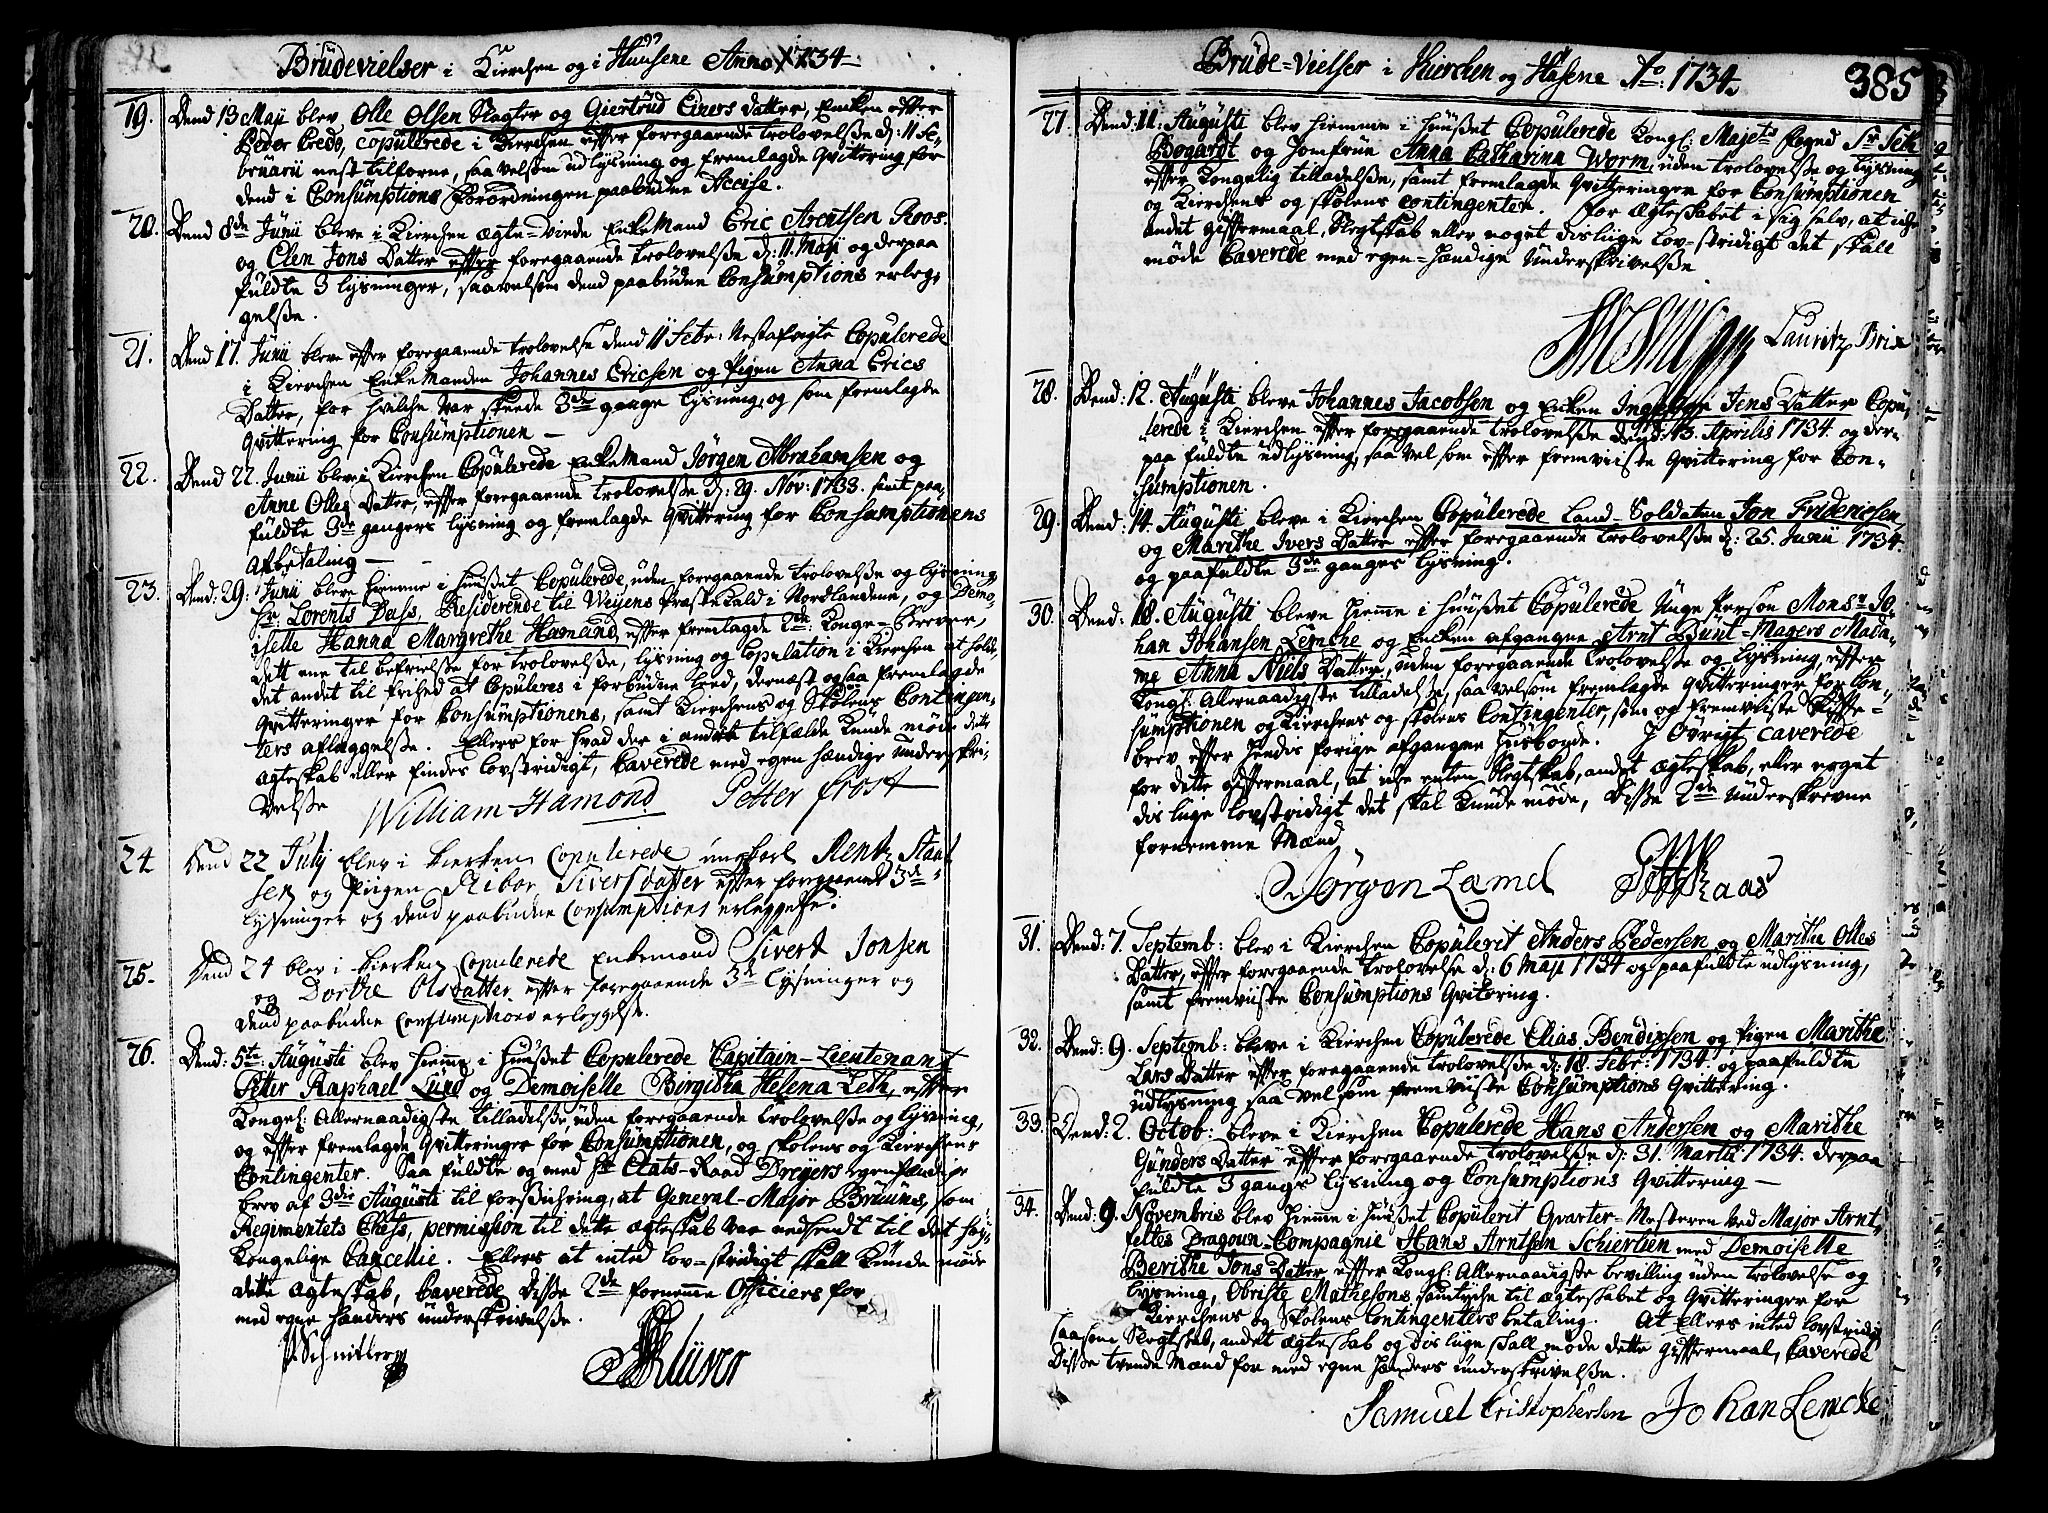 Brüdevielser i Kierchen og i Huusene Anno 1734
19. Dend 13 Maji blev Olle Olsen Slagter og Giertrud Einers Datter, Enken efter
Peder Credo, copulerede i Kierchen efter foregaaende trolovelse d: 11 Fe-
bruarii nest tilforne, saa velsom udlysning og fremlagde Qvittering for
dend i Consumptions Forordningen paabudne Accise.
20. Dend 8de Junii bleve i Kierchen ægte-viede EnkeMand Eric Arentsen Roos
og Elen Jons Datter efter foregaaende trolovelse d: 11. Maji og derpaa
fuldte 3 lysninger, saavelsom dend paabudne Consumptions erleg-
gelse.
21. Dend 17. Junii bleve efter foregaaende trolovelse dend 11 Febr: Nestafvigte Copulerede
i Kierchen EnkeManden Johannes Ericsen og Pigen Anna Erics
Datter, for hvilche var skeede 3de gange lysning, og som fremlagde
Qvittering for Consumptionen
22. Dend 22. Junii bleve i Kierchen Copulerede EnkeMand Jörgen Abrahamsen og
Anne Olles Datter, efter foregaaende trolovelse d: 29. Nov: 1733. samt paa-
fuldte 3de gangers lysning og fremlagde Qvittering for Consumptionens
Afbetaling
23. Dend: 29: Junii bleve hiemme i Huuset Copulerede, uden foregaaende trolovelse og lysning
Hr. Lorents Dass, Residerende til Weyens Præste Kald i Nordlandene, og Demo-
iselle Hanna Margrethe Hamund, efter fremlagde 2de: Konge-Brever,
Dett ene til befrielse for trolovelse, lysning og Copulation i Kierchen at holde,
det andet til frihed at Copuleres i forbudne Leed, dernæst ogsaa fremlagde
Qvitteringer for Consumptionens, samt Kierchens og Skolens Contingen-
ters aflæggelse. Ellers for hvad der i andre tilfælde kunde møde dette
ægteskab eller findes lovstridigt, Caverede med egen hændige underskri-
velse
William Hamond Petter frost
24. Dend 22 July blev i kierken Copulerede ungkarl Rentz Staal
sen og Piigen Siversdatter efter foregaaende 3de
lysninger og dend paabudne Consumptions erleggelse.
25. Dend 24 blev i kierken Copulerede Enkemand Sivert Jonsen
og Dorthe Olsdatter efter foregaaende 3de lysninger og
dend paabudne Consumptions erleggelse.
26. Dend: 5te Augusti blev hiemme i Huuset Copulerede Capitain-Lieutenant
Peter Raphael Lünd og Demoiselle Birgitha Helena Leth, efter
Kongl: Allernaadigste tilladelse, uden foregaaende trolovelse og lysning,
og efter fremlagde Qvitteringer for Consumptionen, og Skolens og Kierchens
Contingenter. Saa fuldte og med Hr. Etats-Raad Dreyers egenhændige
brev af 3die Augusti til forsichring, at General-Major Bruuns, som
Regimentets Chefs, permission til dette ægteskab var nedsendt til det høy-
Kongelige Cancellie. Ellers at intet lov-stridigt skall kunde møde
dette ægteskab, Caverede Disse 2de fornemme Officiers for
med egne hænders underskrivelse.
Schnitler Klüver
Brüde-Vielser i Kierchen og Husene Ao: 1734. 385
27. Dend: 11: Augusti blev hiemme i Huuset Copulerede Kongl: Majets Foged Sr. Seth
Bogardt og Jomfrue Anna Catharina Worm, uden trolovelse og lysning
efter Kongelig tilladelse, samt fremlagde Qvitteringer for Consumptionen
og Kierchens og skolens Contingenter. For ægteskabet i sig selv, at icke
andet giftermaal, Slegtskab eller noget disliige lov-stridigt det skall
møde Caverede med egen-hændige Underskrivelse
Lauritz Brix
28. Dend: 12. Augusti bleve Johannes Jacobsen og Enken Jens Datter Copu-
lerede i Kierchen efter foregaaende trolovelse dend: 13. Aprilis 1734. og der-
paa fuldte udlysning, saa vel som efter fremviiste Qvittering for Con-
sumptionen.
29. Dend: 14. Augusti bleve i Kierchen Copulerede Land-Soldaten Jon Fridericsen
og Marithe Ivers Datter efter foregaaende trolovelse d: 25. Junii 1734.
og paafuldte 3de ganges lysning.
30. Dend: 18. Augusti bleve hiemme i Huuset Copulerede Unge Person Monsr. Jo-
han Johansen Lemche og Encken afgangne Arnt Bunt-Magers Mada-
me Anna Niels Datter, uden foregaaende trolovelse og lysning, efter
Kongl: Allernaadigste tilladelse, saa velsom fremlagde Qvitteringer for Con-
sumptionen og Kierchens og skolens Contingenter, som og fremviiste Skifte-
brev efter hendes forige afgangne Husbonde. J Øvrigt caverede
for dette giftermaal, at icke enten Slegtskab, andet ægteskab, eller noget
disliige lovstridigt det skal kunde møde, Disse 2de underskrevne
fornemme Mænd
Jørgen Lamd Raas
31. Dend: 7. Septemb: blev i Kierchen Copulerit Anders Pedersen og Marithe Olles
Datter, efter foregaaende trolovelse d: 6 Maji 1734 og paafuldte udlysning,
samt fremviiste Consumptions Qvitering.
32. Dend: 9. Septemb: bleve i Kierchen Copulerede Elias Bendixsen og Pigen Marithe
Lars Datter efter foregaaende trolovelse d: 18. Febr: 1734. og paafuldte
udlysning saa vel som fremviiste Consumptions Qvittering.
33. Dend: 2. Octob: bleve i Kierchen Copulerede Hans Andersen og Marithe
Gunders Datter efter foregaaende trolovelse d: 31. Martii 1734. derpaa
fuldte 3 gangs lysning og Consumptions Qvittering
34. Dend: 9. Novembris blev hiemme i Huuset Copulerit Qvarter-Mesteren ved Major Arnt-
feltes Dragoun-Compagnie Hans Arntsen Schiertien med Demoiselle
Berithe Jons Datter efter Kongl: Allernaadigste bevilling uden trolovelse og
lysning, Obriste Mathesons samtyche til ægteskabet og Qvitteringer for
Kierchens og Skolens Contingenters betaling. At Ellers intet lovstridigt
saasom Slegtskab, andet ægteskab og dis liige skall møde dette giftermaal, Caverede
Disse tvende Mænd for med egne hænders underskrivelse.
Samuel Cristophersen Johan Lemcke